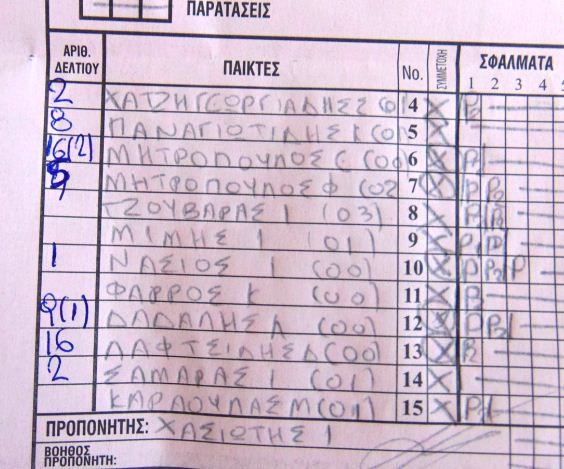 ΠΑΡΑΤΑΣΕΙΣ
ΑΡΙΘ. ΔΕΛΤΙΟΥ ΠΑΙΚΤΕΣ No. ΣΥΜΜΕΤΟΧΗ ΣΦΑΛΜΑΤΑ
1 2 3 4 5
2 ΧΑΤΖΗΓΕΩΡΓΙΑΔΗΣ Σ 4 X P2
8 ΠΑΝΑΓΙΩΤΙΔΗΣ Κ 5 X
16(2) ΜΗΤΡΟΠΟΥΛΟΣ (00 6 X P
ΜΗΤΡΟΠΟΥΛΟΣ Φ (02 7 X P P2
ΤΖΟΥΒΑΡΑΣ Ι (03) 8 X P
ΜΙΜΗΣ Ι (01) 9 X P
1 ΝΑΣΙΟΣ Ι (00) 10 X P P2 P
ΦΑΡΡΟΣ Κ (00) 11 X
9(1) ΔΑΔΑΛΗΣ Λ (00) 12 X P
16 ΛΑΦΤΣΙΔΗΣ Δ (00) 13 X
2 ΣΑΜΑΡΑΣ Ι (01) 14 X
ΚΑΡΑΟΥΛΑΣ Μ (01) 15 X P
ΠΡΟΠΟΝΗΤΗΣ: ΧΑΣΙΩΤΗΣ Ι
ΒΟΗΘΟΣ
ΠΡΟΠΟΝΗΤΗ: